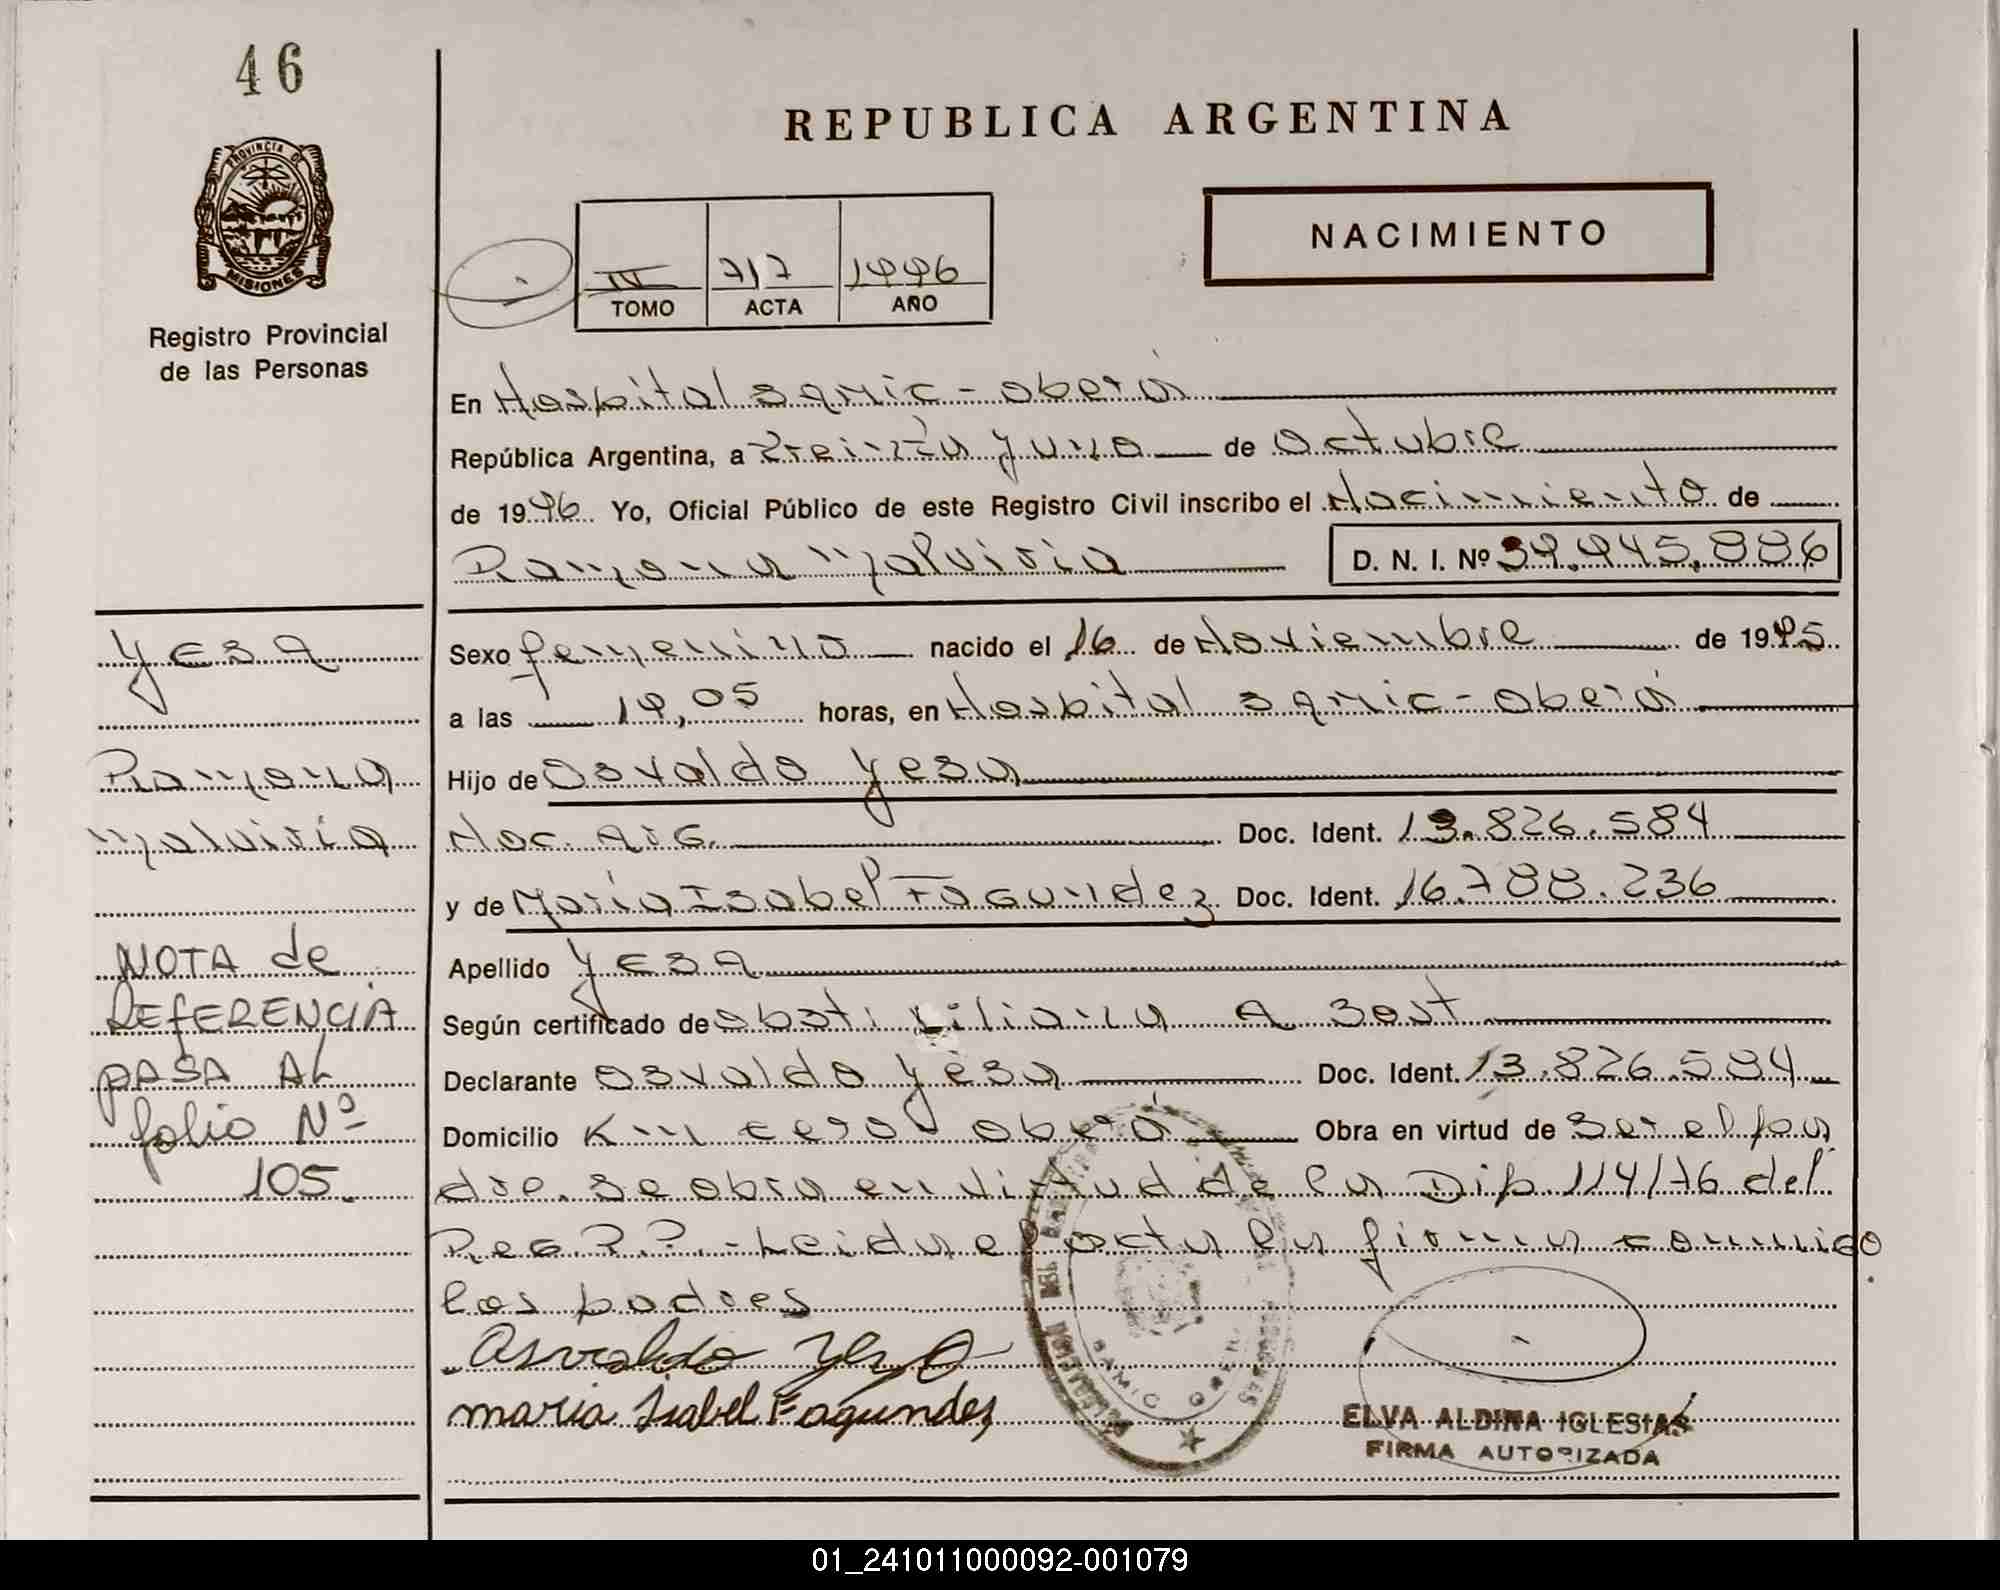 46
REPUBLICA ARGENTINA
PROVINCIA DE
MISIONES
Registro Provincial
de las Personas
NACIMIENTO
III 717 1996
TOMO ACTA AÑO
En Hospital Samic - Oberá
República Argentina, a Treinta y uno de Octubre
de 1996 Yo, Oficial Público de este Registro Civil inscribo el Nacimiento de
Ramona Malviria D. N. I. Nº 39.945.886
Yesa
Sexo femenino nacido el 16 de Noviembre de 1995
a las 19,05 horas, en Hospital Samic - Oberá
Ramona
Hijo de Osvaldo Yesa
Malviria
Nac. Arg. Doc. Ident. 13.826.584
y de Maria Isabel Fagundez Doc. Ident. 16.788.236
NOTA de
Apellido Yesa
REFERENCIA
Según certificado de obst. Liliana A Sost
PASA AL
Declarante Osvaldo Yesa Doc. Ident. 13.826.584
folio Nº
Domicilio Km cero Oberá Obra en virtud de ser el pa
105.
dre. Se obra en virtud de la Dip. 114/76 del
Reg. P.P. - Leida el acta la firman conmigo
los padres
Osvaldo Yesa
Maria Isabel Fagundez
SAMIC OBERA
ELVA ALDINA IGLESIAS
FIRMA AUTORIZADA
01_241011000092-001079